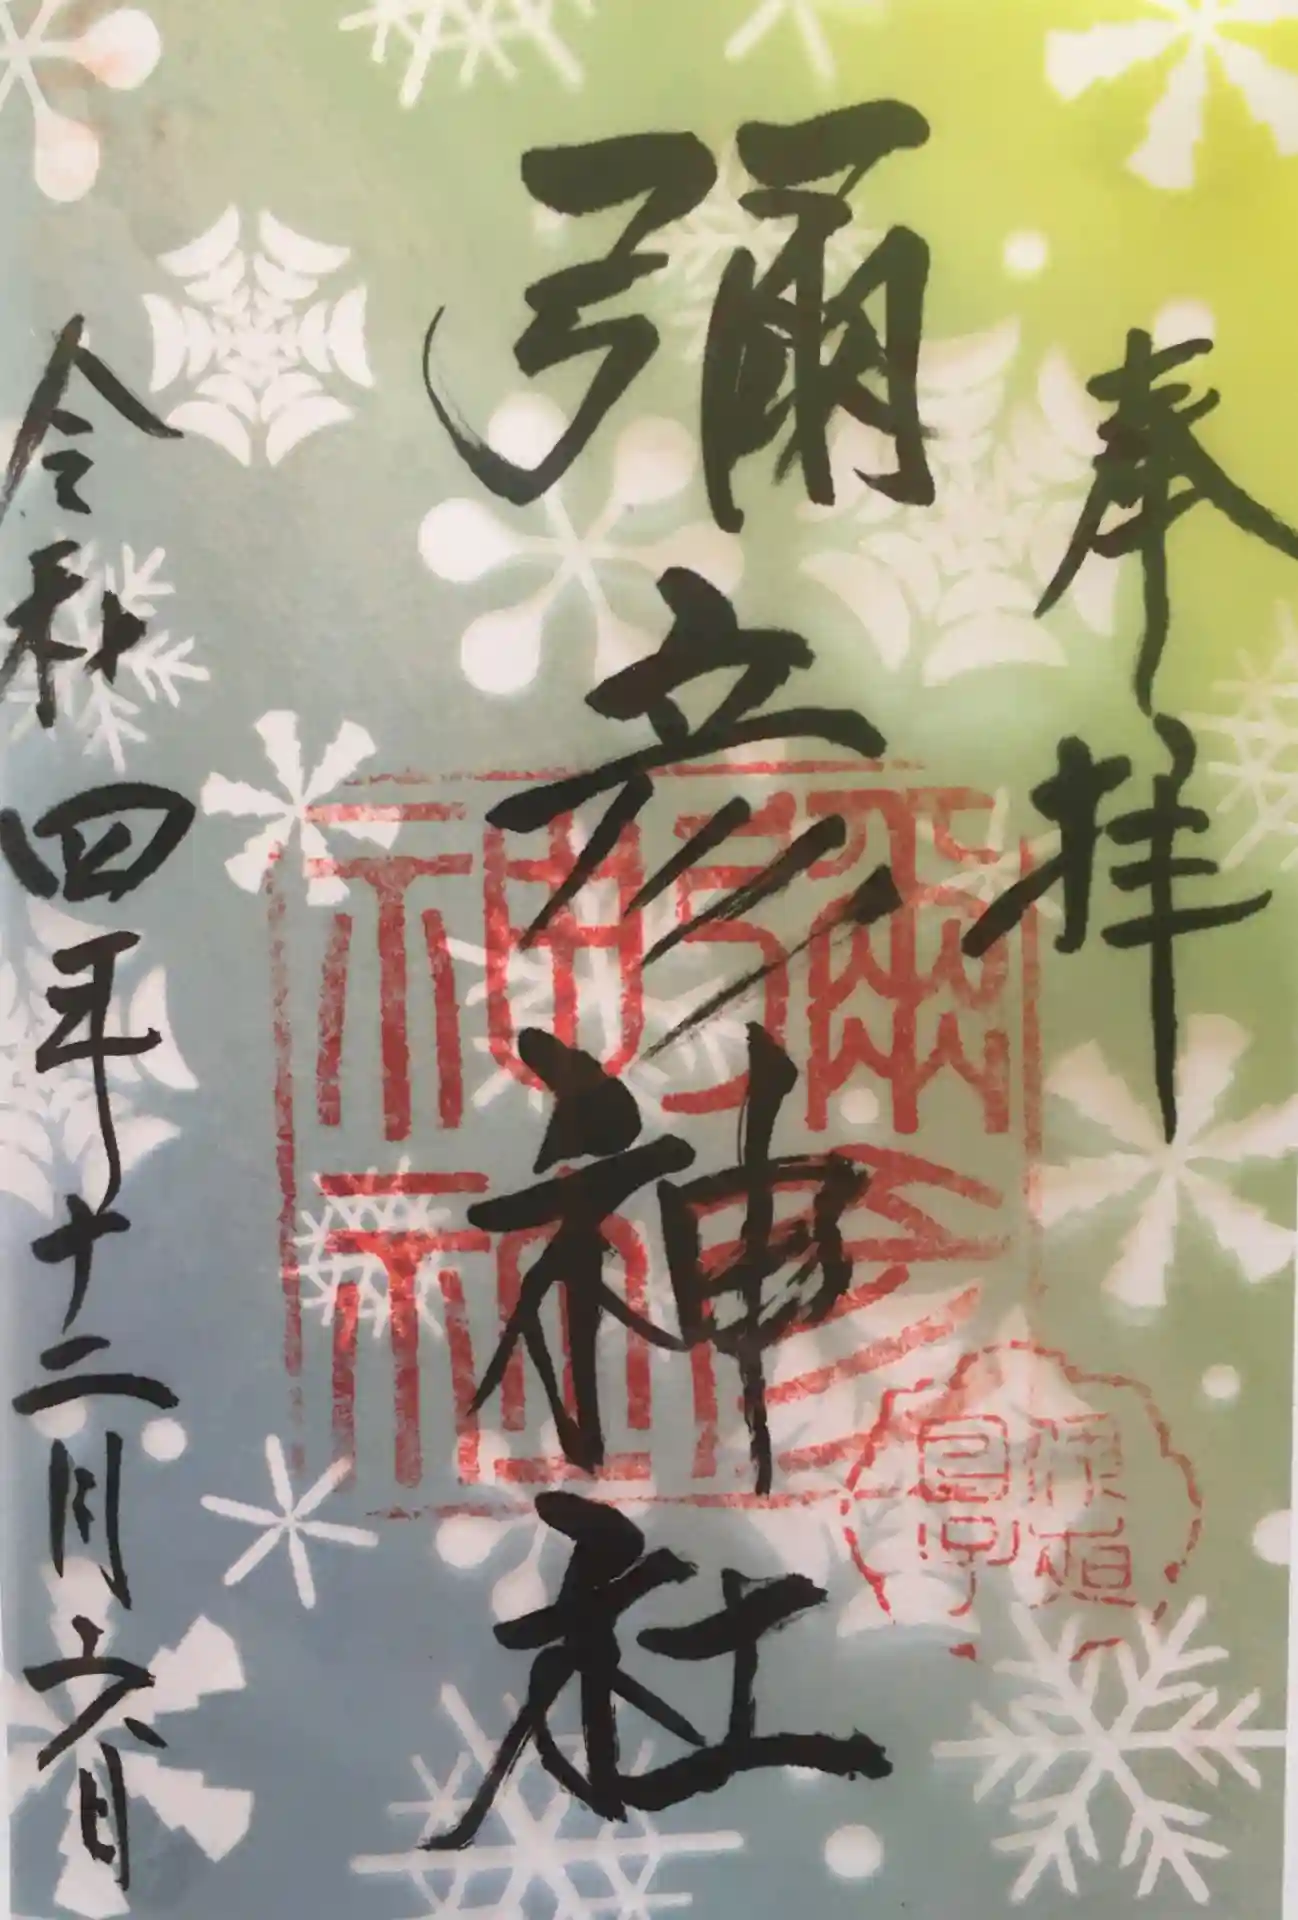 奉拝
彌彦神社
令和四年十二月六日
彌彦
神社